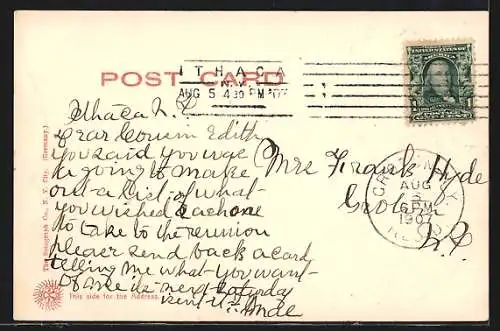 POST CARD
ITHACA
N.Y.
AUG 5 4 30 PM '07
Ithaca N.Y.
Dear Cousin Edith
you said you was
a going to make
out a list of what
you wished each one
to take to the reunion
please send back a card
telling me what you want
of me is next Saturday
Mrs Frank Hyde
Groton
N.Y.
AUG
6 PM
1907
REC'D
UNITED STATES
The Rotograph Co., N. Y. City. (Germany.)
This side for the Address.